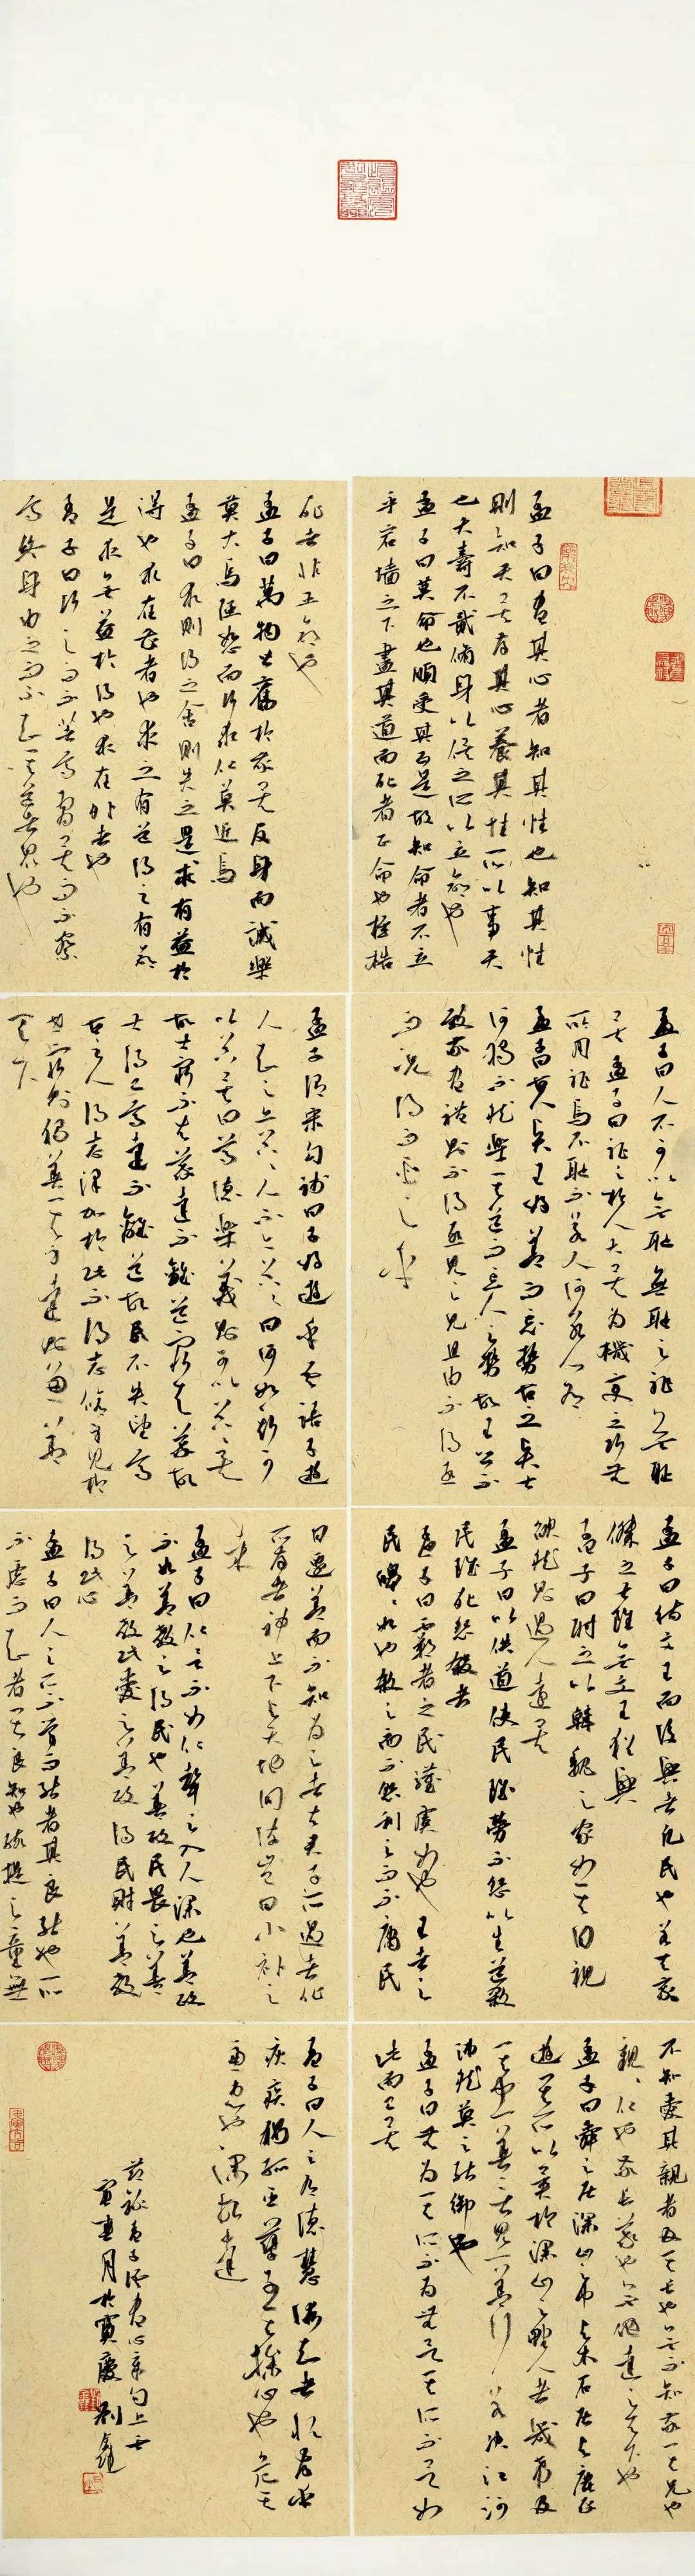 孟子曰盡其心者知其性也知其性
則知天矣存其心養其性所以事天
也夭壽不貳修身以俟之所以立命也
孟子曰莫命也順受其正是故知命者不立
乎岩墻之下盡其道而死者正命也桎梏
死者非正命也
孟子曰萬物皆備於我矣反身而誠樂
莫大焉強恕而行求仁莫近焉
孟子曰求則得之舍則失之是求有益於
得也求在我者也求之有道得之有命
是求無益於得也求在外者也
孟子曰行之而不著焉習矣而不察
焉終身由之而不知其道者眾也
孟子曰人不可以無恥無恥之恥無恥
矣孟子曰恥之於人大矣為機變之巧者無
所用恥焉不恥不若人何若人有
孟子曰古之賢王好善而忘勢古之賢士
何獨不然樂其道而忘人之勢故王公不
致敬盡禮則不得亟見之見且由不得亟
而況得而臣之乎
孟子謂宋句踐曰子好遊乎吾語子遊
人知之亦囂囂人不知亦囂囂曰何如斯可
以囂囂矣曰尊德樂義則可以囂囂矣
故士窮不失義達不離道窮不失義故
士得己焉達不離道故民不失望焉
古之人得志澤加於民不得志修身見於
世窮則獨善其身達則兼善
天下
孟子曰待文王而後興者凡民也若夫豪
傑之士雖無文王猶興
孟子曰附之以韓魏之家如其自視
欿然則過人遠矣
孟子曰以佚道使民雖勞不怨以生道殺
民雖死不怨殺者
孟子曰霸者之民驩虞如也王者之
民皞々如也殺之而不怨利之而不庸民
日遷善而不知為之者夫君子所過者化
所存者神上下與天地同流豈曰小補之
哉
孟子曰仁言不如仁聲之入人深也善政
不如善教之得民也善政民畏之善
教民愛之善政得民財善教
得民心
孟子曰人之所不學而能者其良能也所
不慮而知者其良知也孩提之童無
不知愛其親者及其長也無不知敬其兄也
親親仁也敬長義也無他達之天下也
孟子曰舜之居深山之中與木石居與鹿豕
遊其所以異於深山之野人者幾希及
其聞一善言見一善行若決江河
沛然莫之能御也
孟子曰無為其所不為無欲其所不欲如
此而已矣
孟子曰人之有德慧術知者恆存乎
疢疾獨孤臣孽子其操心也危其
慮患也深故達
節錄孟子盡心章句上
劉鑫